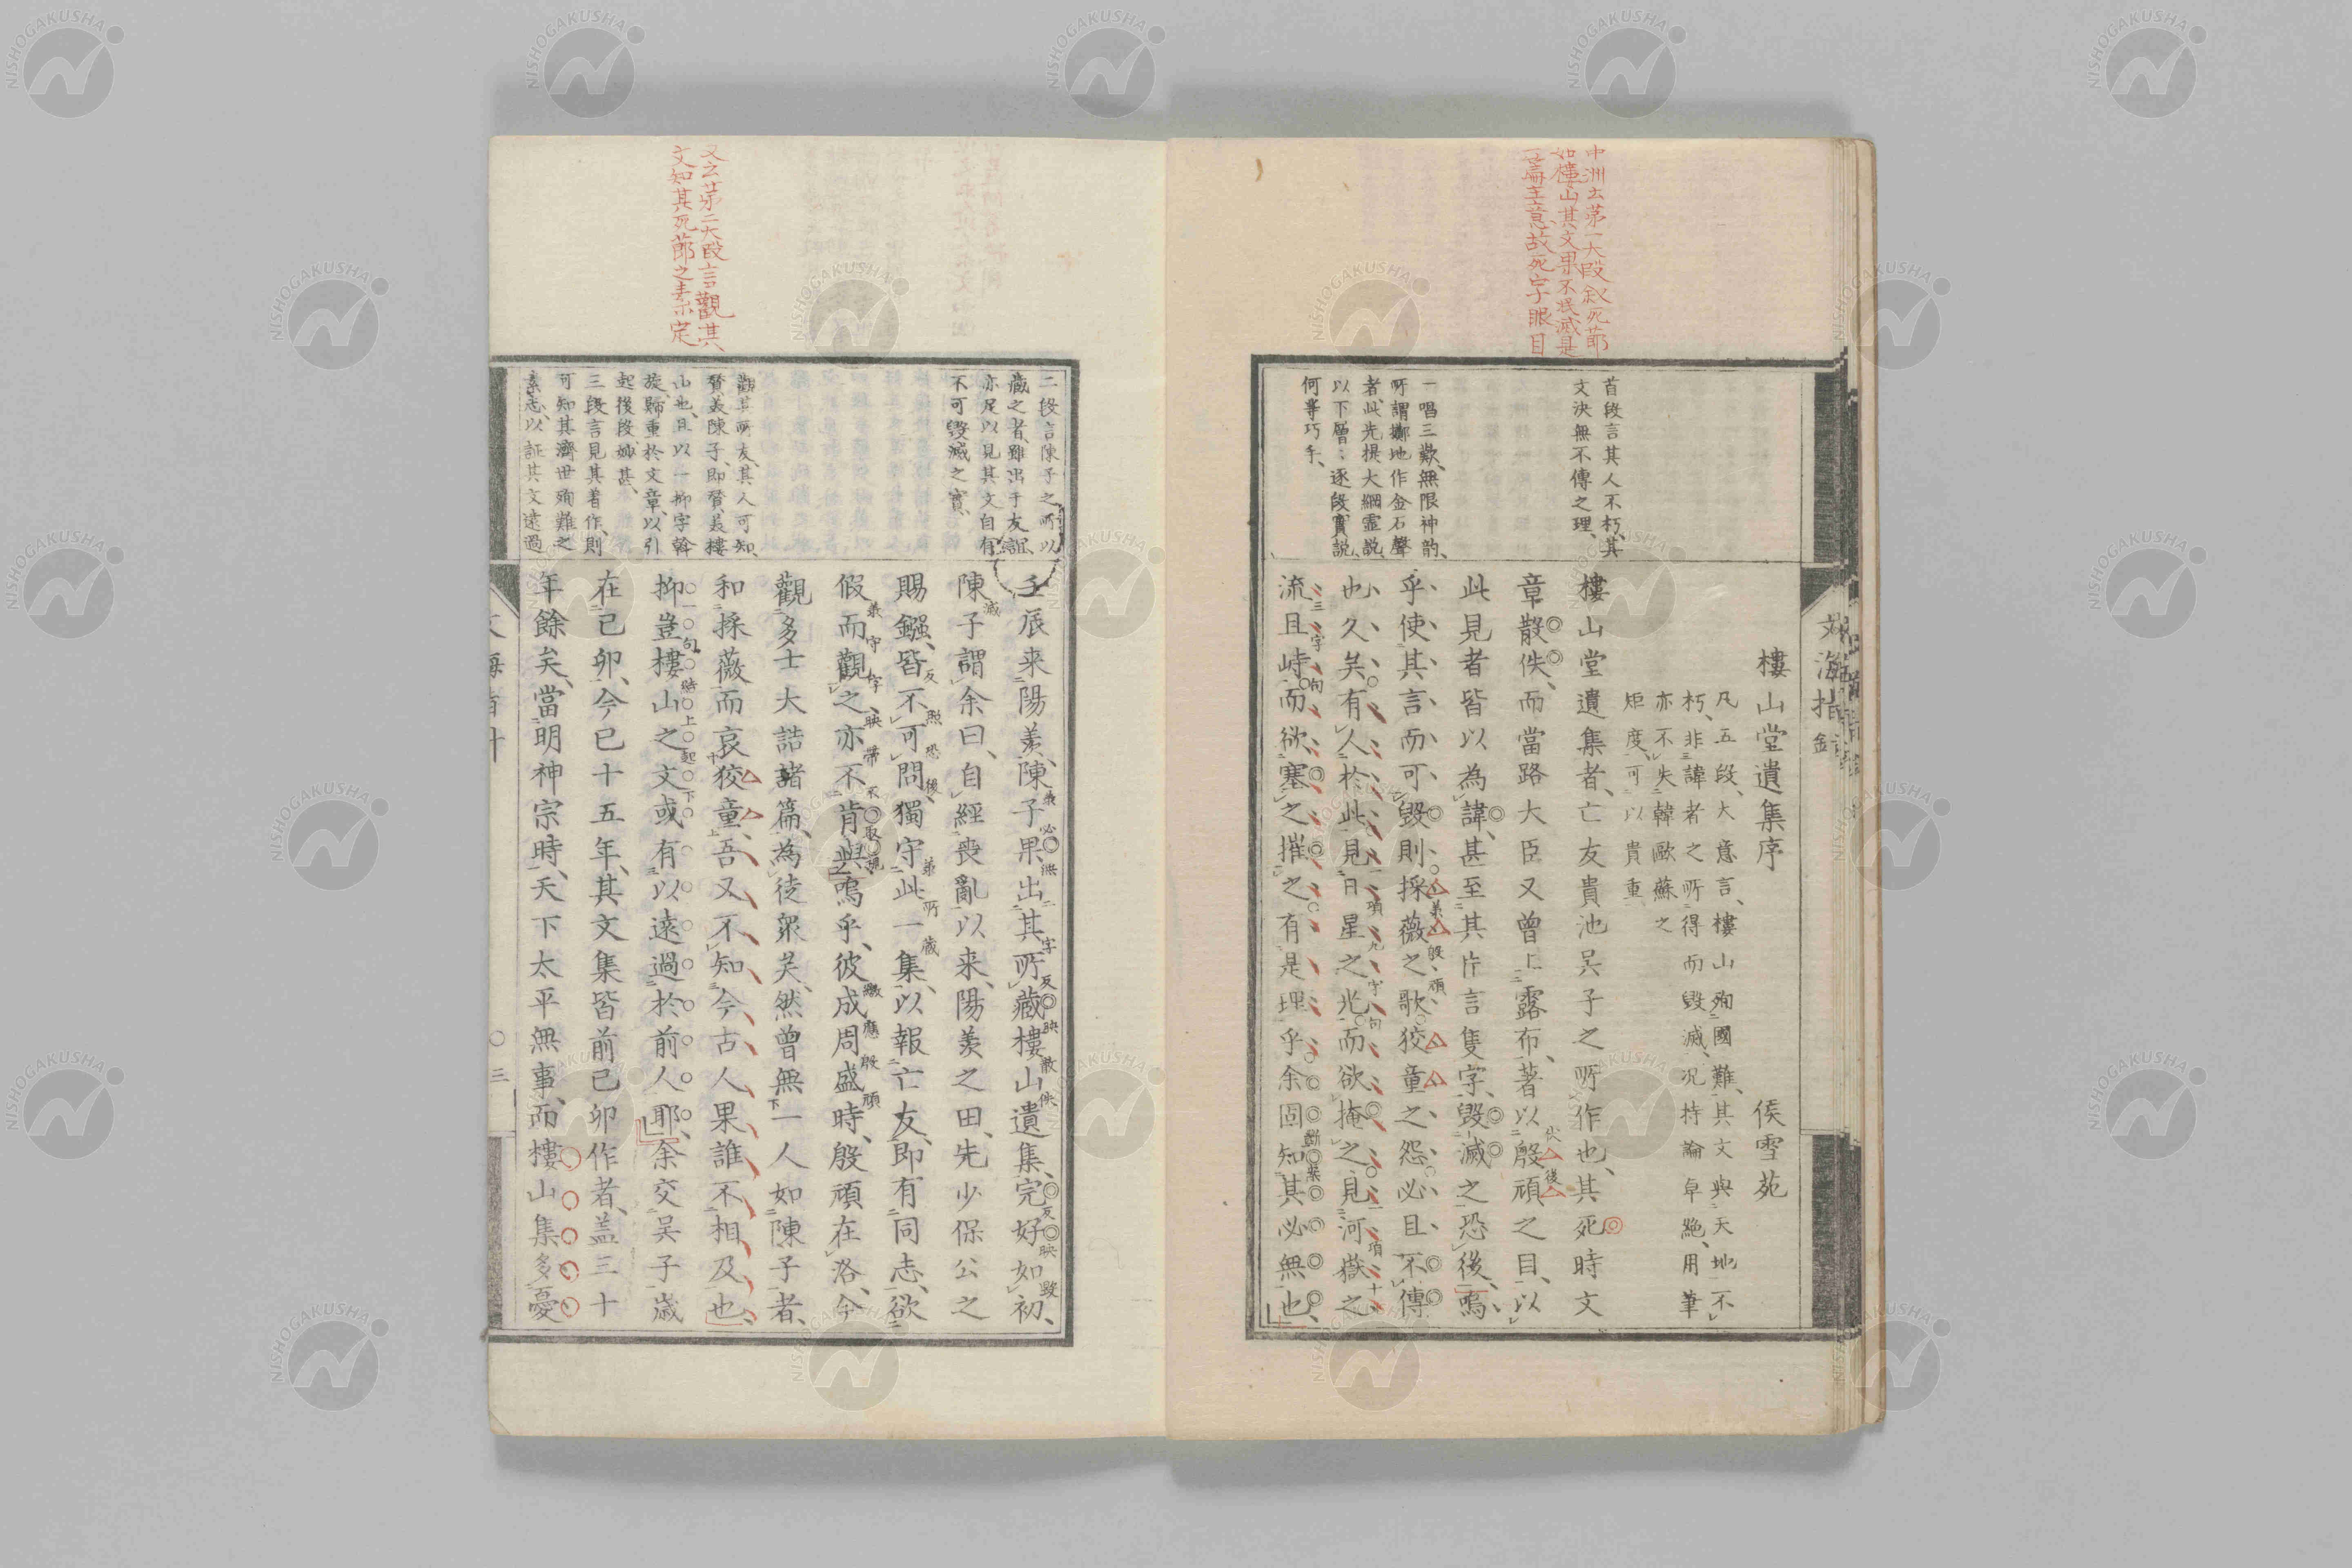 中洲云第一大段敘死節
如樓山其文果不泯滅是
一篇主意故死字眼目
首段言其人不朽、其
文決無不傳之理、
一唱三歎、無限神韵、
所謂擲地作金石聲
者、此先提大綱霊説、
以下層々逐段實説、
何等巧手、
樓山堂遺集序 侯雪苑
凡五段、大意言、樓山殉國難、其文與天地不
朽、非諱者之所得而毀滅、况持論卓絶、用筆
亦不失韓歐蘇之
矩度、可以貴重
樓山堂遺集者、亡友貴池吳子之所作也、其死時文
章散佚、而當路大臣又曾上露布、著以殷頑之目、以
此見者皆以為諱、甚至其片言隻字、毀滅之恐後、嗚
乎、使其言而可毀、則採薇之歌、狡童之怨、必且不傳
也久矣、有人於此、見日星之光、而欲掩之、見河嶽之
流且峙、而欲塞之摧之、有是理乎、余固知其必無也、
文海指針
又云第二大段言觀其
文知其死節之素定
二段言陳子之所以
藏之者、雖出于友誼、
亦足以見其文自有
不可毀滅之實、
觀其所友、其人可知、
賛美陳子、即賛美樓
山也、且以一抑字斡
旋、歸重於文章、以引
起後段、妙甚、
三段言見其著作、則
可知其濟世殉難之
素志、以証其文遠過
壬辰来陽羨、陳子果出其所藏樓山遺集、完好如初、
陳子謂余曰、自經喪亂以来、陽羨之田、先少保公之
賜鏹、皆不可問、獨守此一集、以報亡友、即有同志、欲
假而觀之、亦不肯與、嗚乎、彼成周盛時、殷頑在洛、今
觀多士大誥諸篇、為徒衆矣、然曾無一人如陳子者、
和採薇而哀狡童、吾又不知今古人果誰不相及也、
抑豈樓山之文、或有以遠過於前人耶、余交吳子、歳
在己卯、今已十五年、其文集皆前己卯作者、盖三十
年餘矣、當明神宗時、天下太平無事、而樓山集多憂
文海指針
三